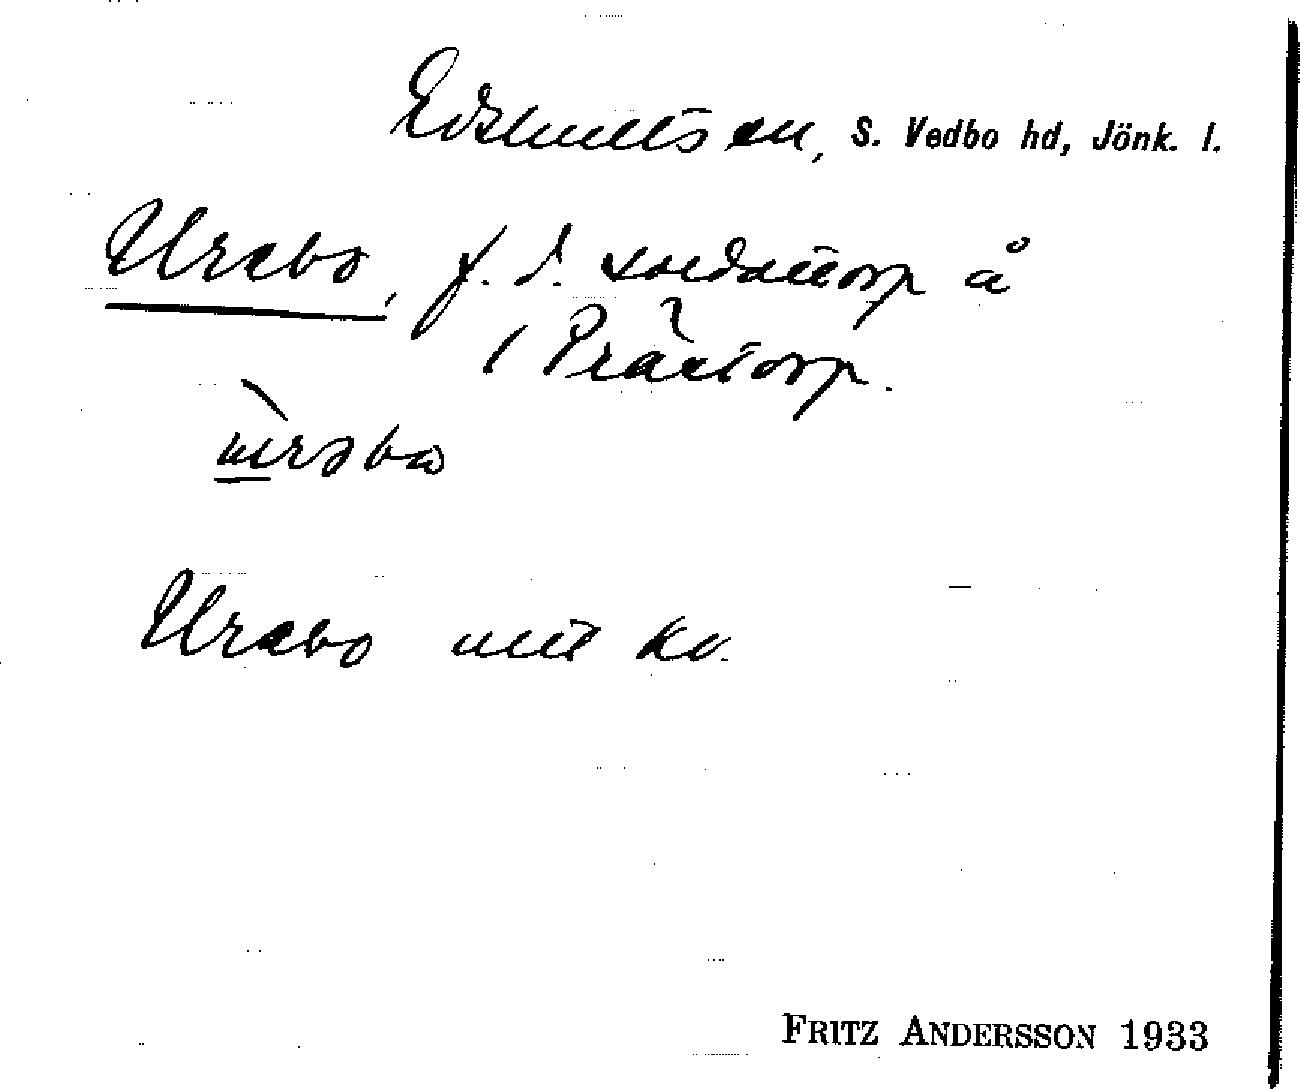 Edshults sn, S. Vedbo hd, Jönk. l.
Urabo, f. d. soldattorp å
Prästorp.
Urabo urt kv.
FRITZ ANDERSSON 1933